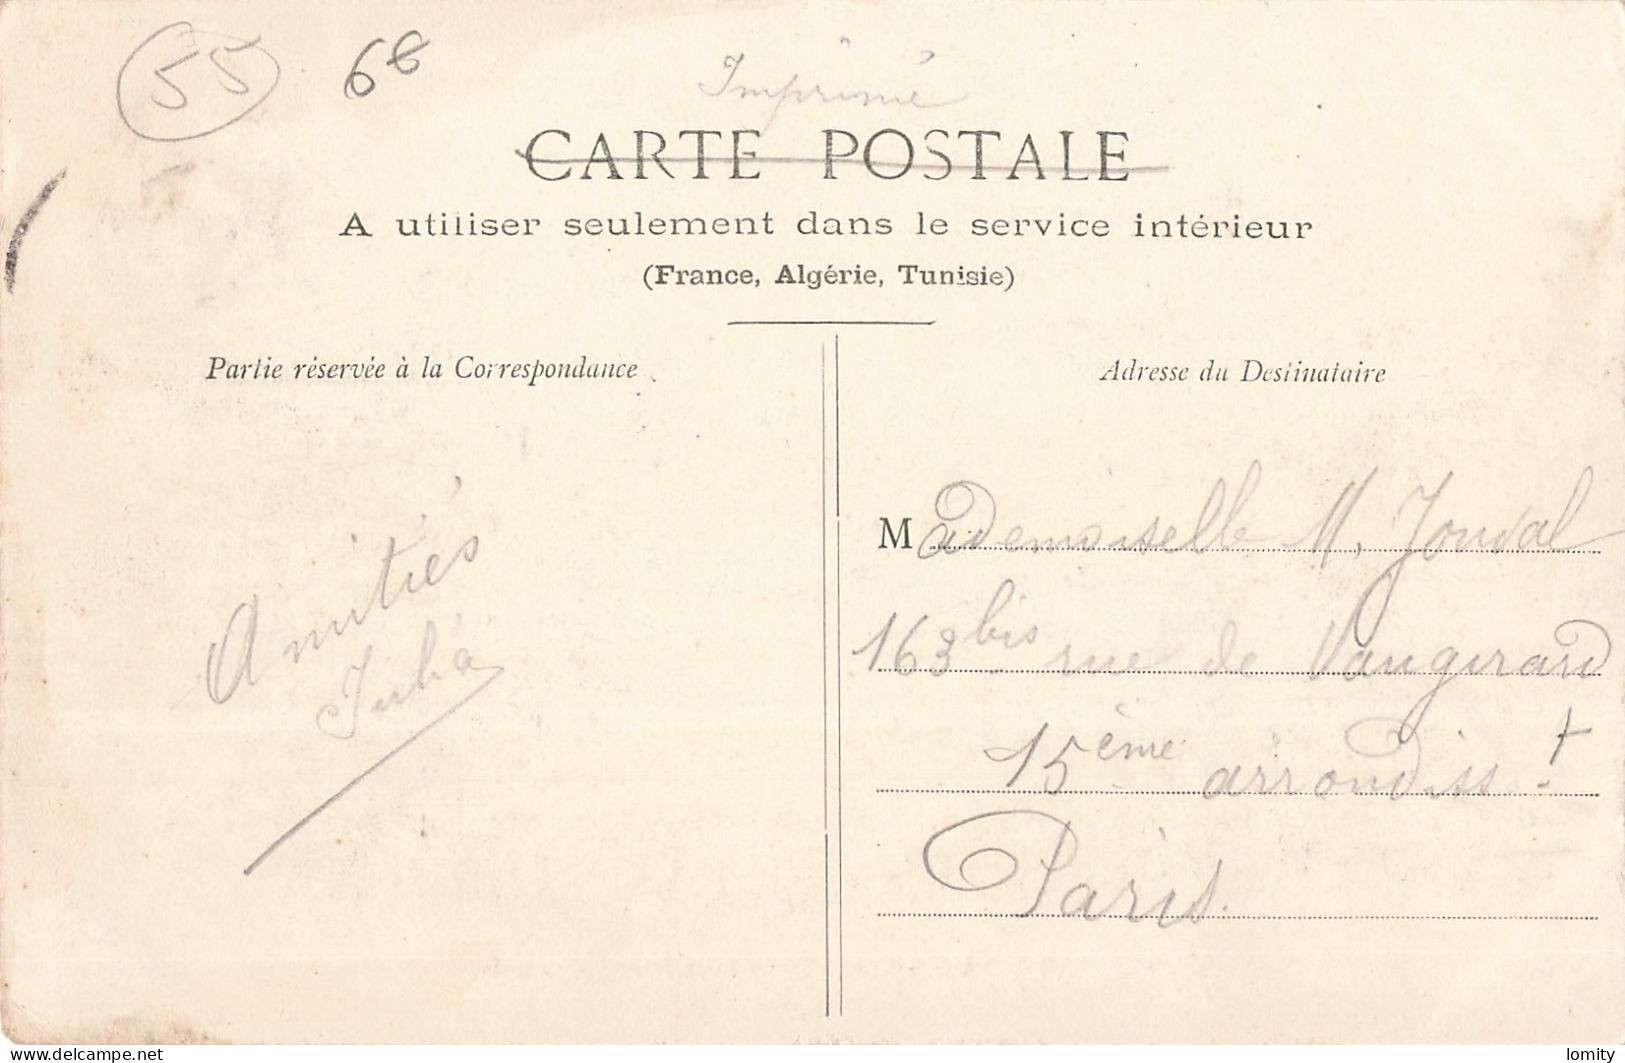 55 68
Imprimé
CARTE POSTALE
A utiliser seulement dans le service intérieur
(France, Algérie, Tunisie)
Partie réservée à la Correspondance
Amitiés
Adresse du Destinataire
Mademoiselle M. Jouval
163 bis rue de Vaugirard
15ème arrondiss.t
Paris.
www.delcampe.net
lomity